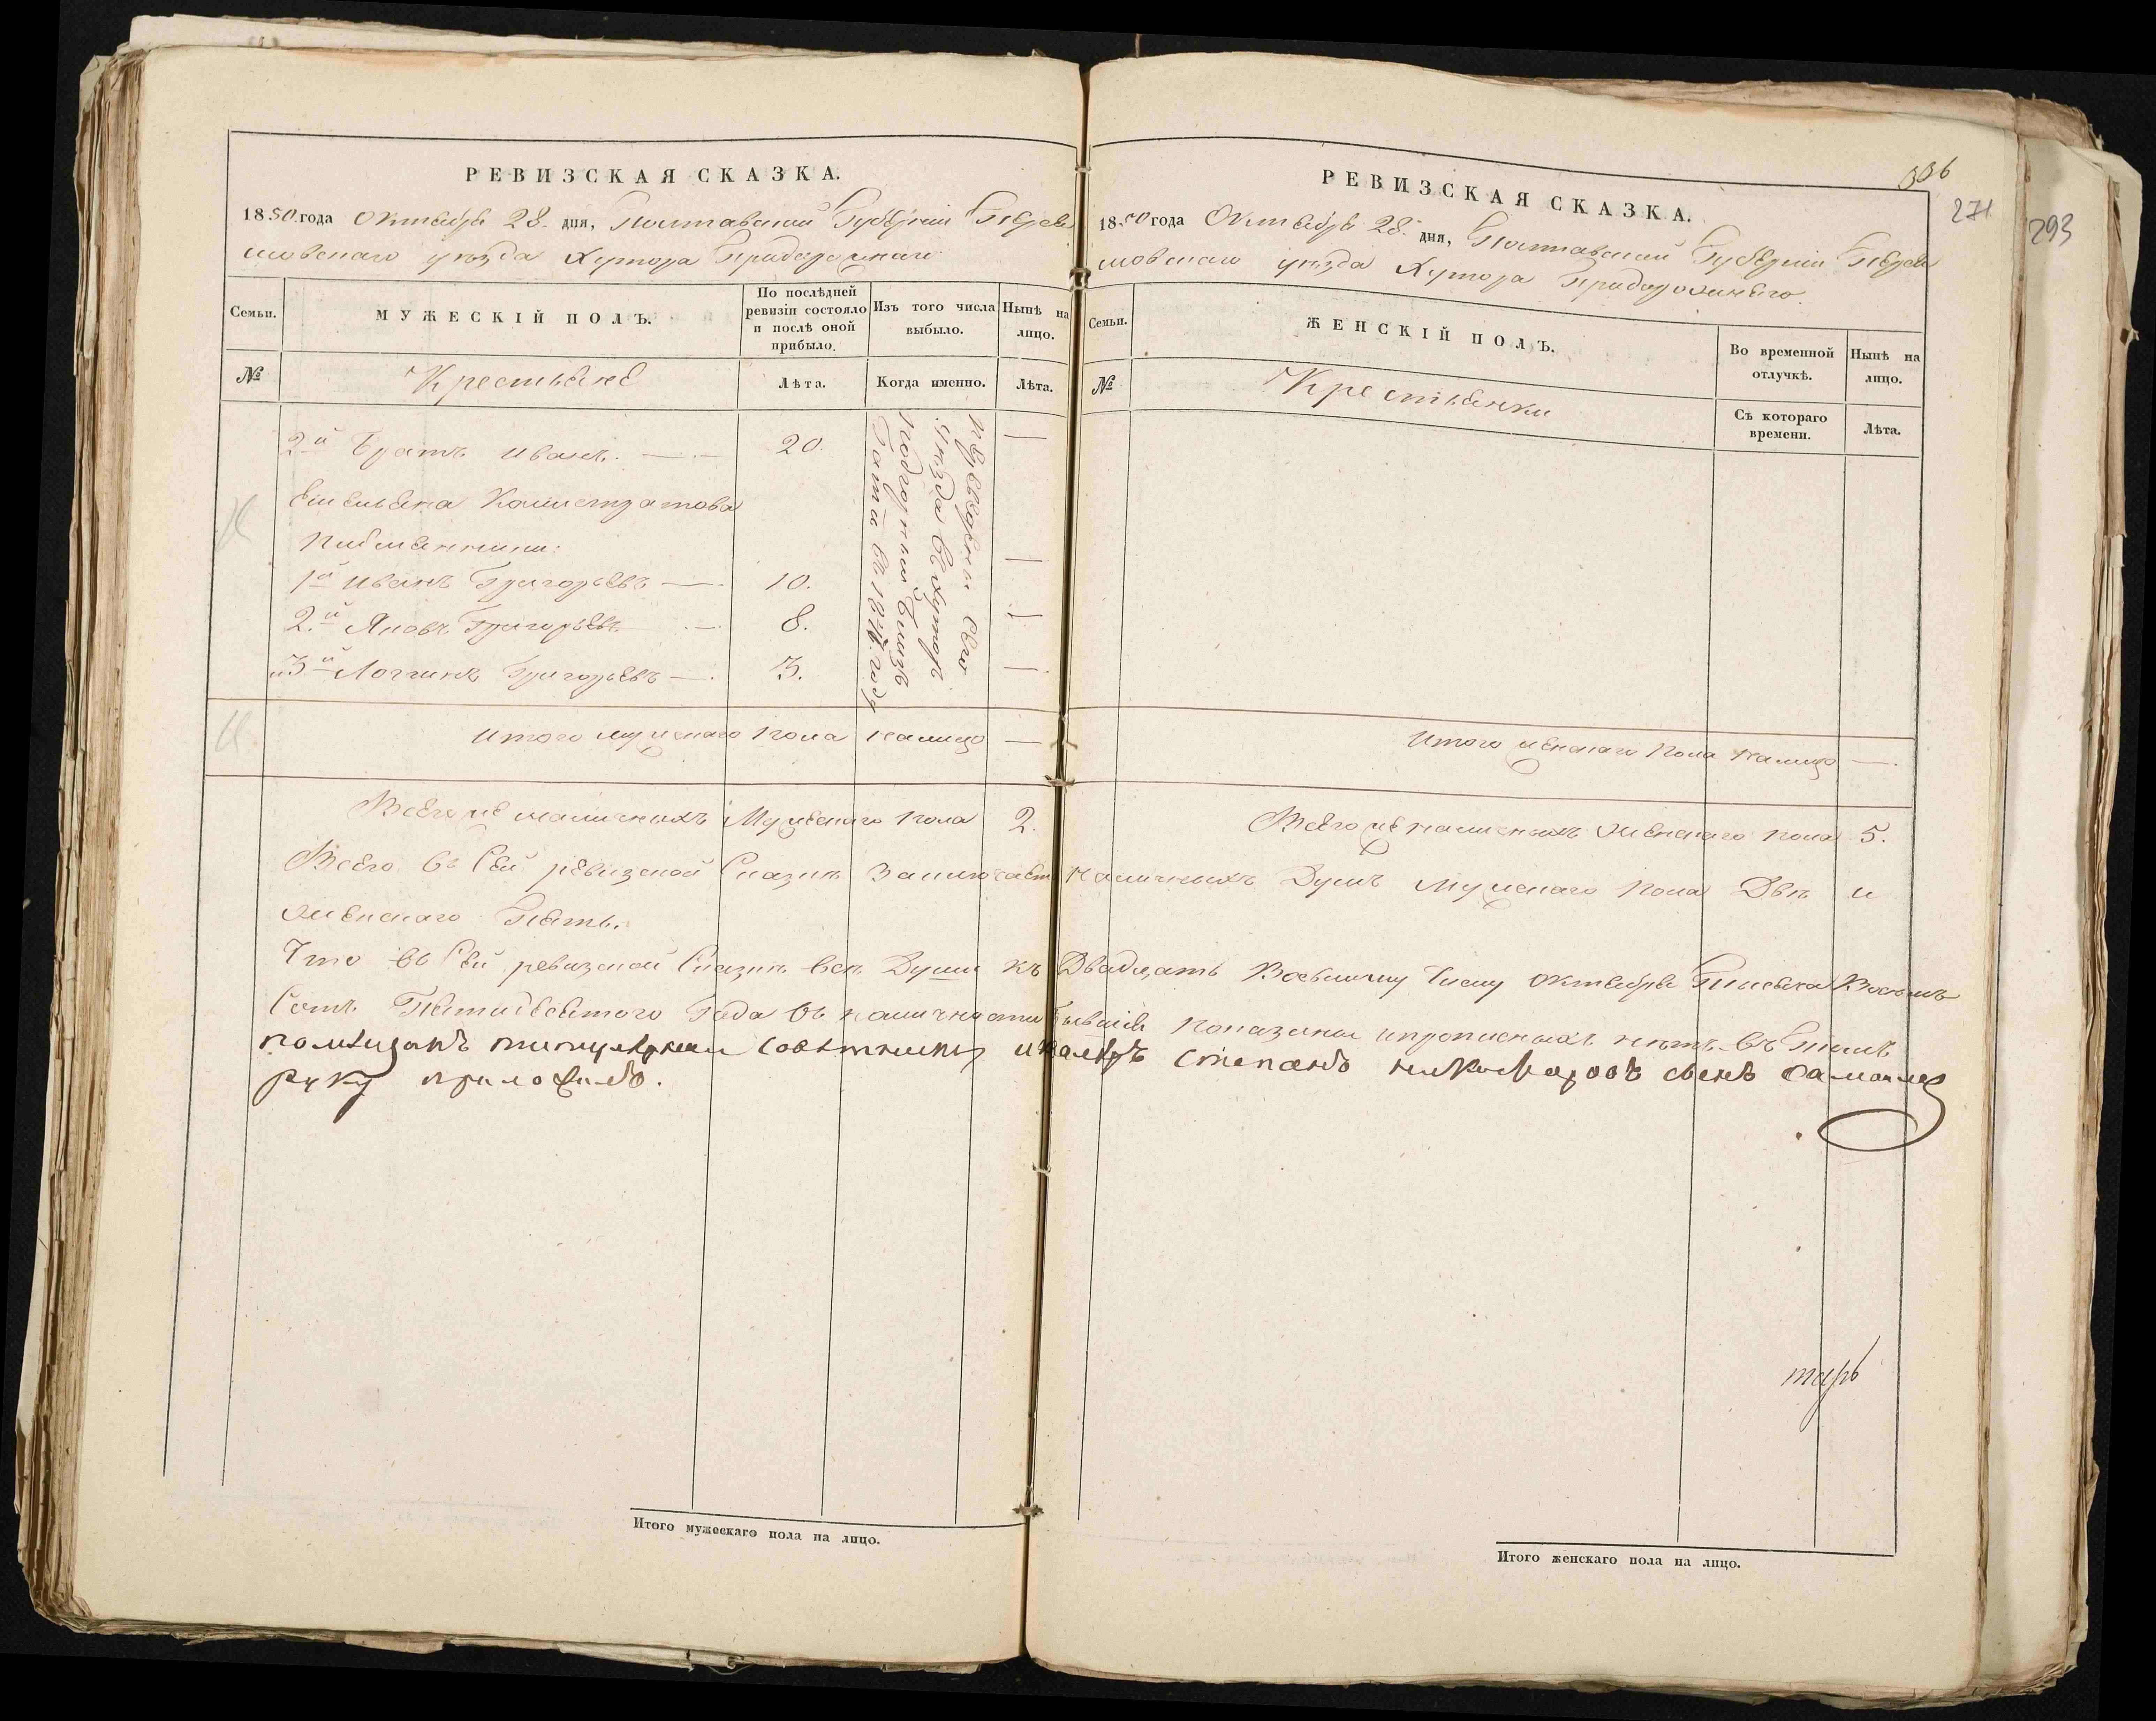 РЕВИЗСКАЯ СКАЗКА.
1850 года Октября 28. дня, Полтавской Губерніи Перея
словскаго уѣзда Хутора Придорожнаго
Семьи.
МУЖЕСКІЙ ПОЛЪ.
По послѣдней ревизіи состояло и послѣ оной прибыло.
Изъ того числа выбыло.
Нынѣ на лицо.
№
Крестьяне
Лѣта.
Когда именно.
Лѣта.
2й Братъ Иванъ. — 20. —
Емельяна Калистратова
племянники:
1й Иванъ Григорьевъ — 10. —
2.й Яковъ Григорьевъ — 8. —
и 3й Логгинъ Григорьевъ — 3. —
переведены сего
уѣзда въ хуторъ
въ 184 году
Итого мужскаго пола налицо —
Всего же наличныхъ мужескаго пола 2.
РЕВИЗСКАЯ СКАЗКА.
306
271
293
1850 года Октября 28. дня, Полтавской Губерніи Перея
словскаго уѣзда Хутора Придорожнаго.
Семьи.
ЖЕНСКІЙ ПОЛЪ.
Во временной отлучкѣ.
Нынѣ на лицо.
№
Крестьянки
Съ котораго времени.
Лѣта.
Итого женскаго пола налицо —
Всего же наличныхъ женскаго пола 5.
Всего въ сей ревизской сказкѣ заключается наличныхъ душъ мужскаго пола двѣ и
женскаго пять.
Что въ сей ревизской сказкѣ всѣ души къ двадцать восьмому числу октября тысяча восемь
сотъ пятидесятого года въ наличности бывшія показаны и прописныхъ нѣтъ въ томъ
помѣщикъ титулярный совѣтникъ и кавалеръ степанъ никифоровъ сынъ
руку приложилъ.
Итого мужескаго пола на лицо.
Итого женскаго пола на лицо.